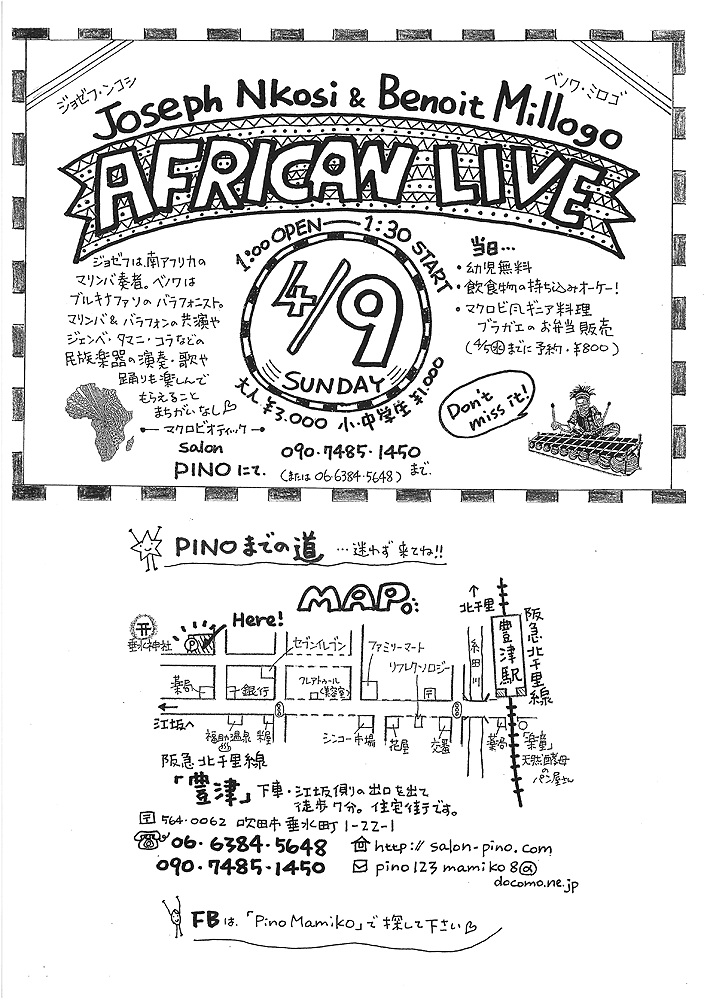 ジョゼフ・ンコシ
ベノワ・ミロゴ
Joseph Nkosi & Benoit Millogo
AFRICAN LIVE
1:00 OPEN ― 1:30 START
4/9
SUNDAY
大人¥3.000 小・中学生¥1.000
ジョゼフは、南アフリカの
マリンバ奏者。ベノワは
ブルキナファソのバラフォニスト。
マリンバ&バラフォンの共演や
ジェンベ・タマニ・コラなどの
民族楽器の演奏・歌や
踊りも楽しんで
もらえること
まちがいなし♡
当日…
・幼児無料
・飲食物の持ち込みオーケー!
・マクロビ風ギニア料理
ブラガエのお弁当販売
(4/5㊌までに予約・¥800)
Don't
miss it!
マクロビオティック
salon
PINOにて.
090・7485・1450
(または 06・6384・5648)まで.
PINOまでの道 …迷わず来てね!!
MAP
Here!
垂水神社
P
セブンイレブン
ファミリーマート
リフレクソロジー
糸田川
↑
北千里
豊津駅
阪急北千里線
薬局
銀行
(美容室)
江坂へ
福助温泉
米屋
シンコー市場
花屋
交番
薬局
「楽童」
天然酵母
の
パン屋さん
阪急北千里線
「豊津」下車・江坂側の出口を出て
徒歩7分。住宅街です。
〒564-0062 吹田市垂水町1-22-1
☎06・6384・5648
090・7485・1450
http://salon-pino.com
pino123mamiko8@
docomo.ne.jp
FBは、「Pino Mamiko」で探して下さい♡